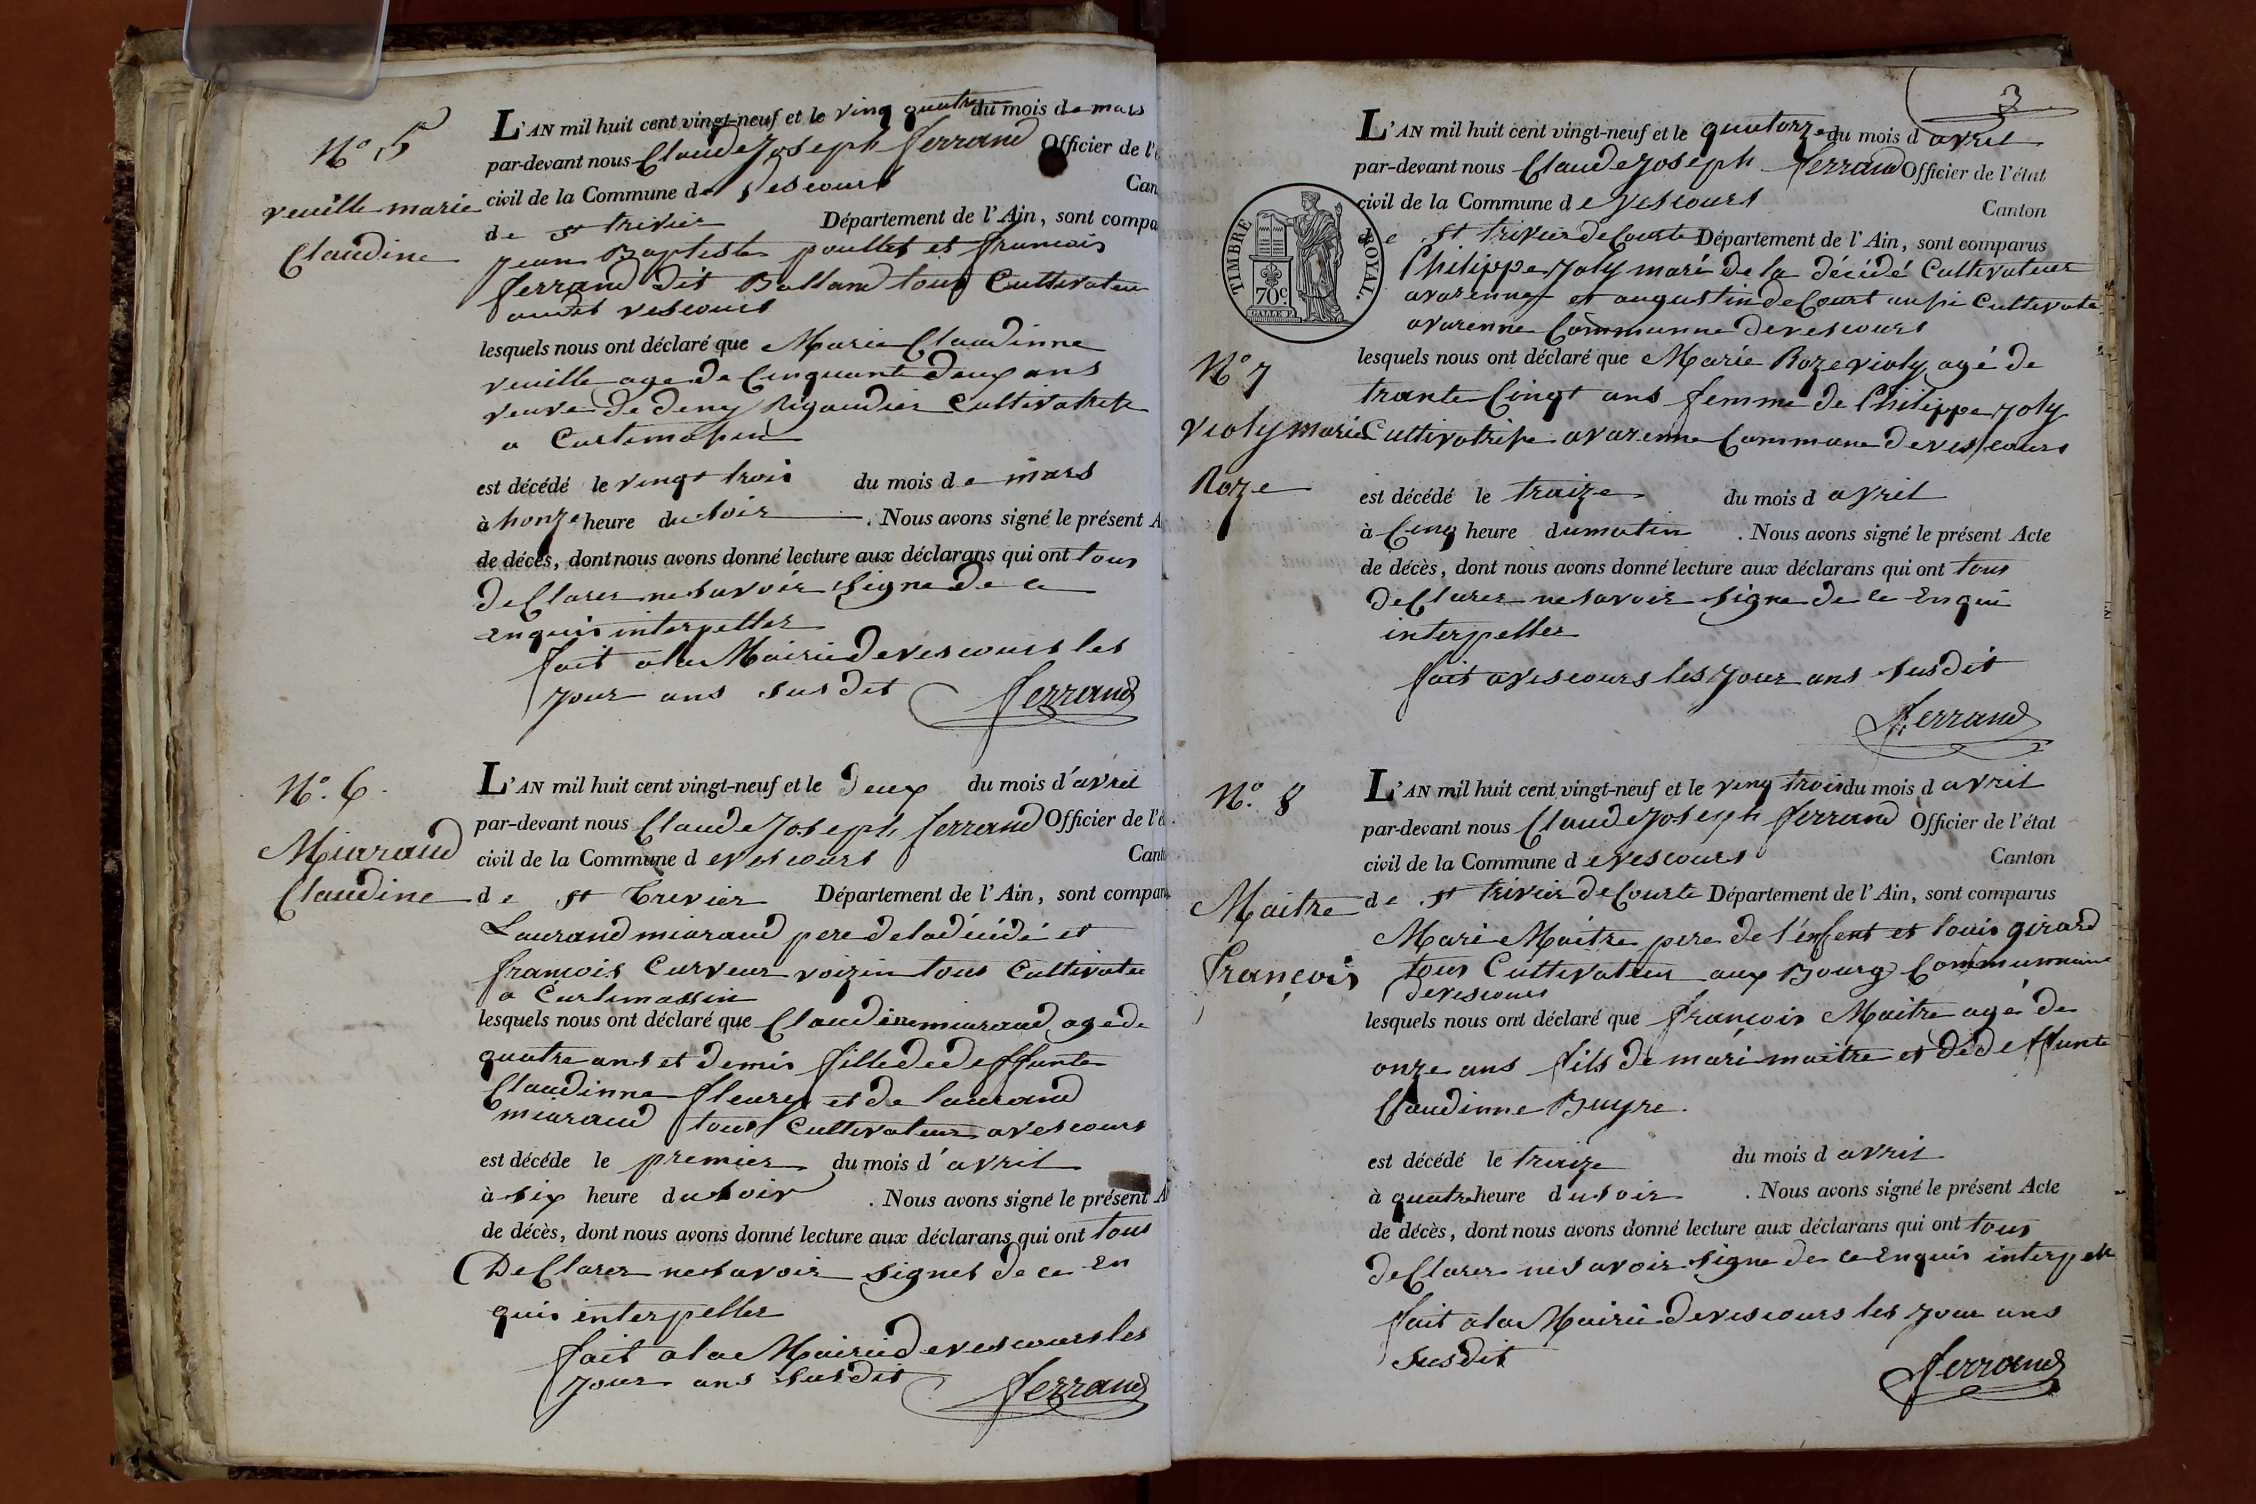 N.° 5
veuille marie
Claudine
L'AN mil huit cent vingt-neuf et le ving quatre du mois de mars
par-devant nous Claude Joseph ferrand Officier de l'é
civil de la Commune de vescours Can
de st trivier Département de l'Ain, sont compa
jean Baptiste poullet et francois
ferrand dit Balland tous Cultivateu
audit vescours
lesquels nous ont déclaré que Marie Claudinne
veuille age de Cinquante deux ans
veuve de deny Rigaudier Cultivatrise
a Curtimassin
est décédé le vingt trois du mois de mars
à honze heure du soir . Nous avons signé le présent A
de décès, dont nous avons donné lecture aux déclarans qui ont tous
deClarer ne savoir signe de ce
enquis interpeller
fait a la Mairie de vescours les
jour ans susdit ferrand
N.° 6
Miaraud
Claudine
L'AN mil huit cent vingt-neuf et le deux du mois d'avril
par-devant nous Claude Joseph ferrand Officier de l'é
civil de la Commune de vescours Cant
de st trevier Département de l'Ain, sont compar
Laurand miaraud pere de la décédé et
francois Curveur voizin tous Cultivateu
a Curtimassin
lesquels nous ont déclaré que Claudinne miaraud age de
quatre ans et demis fille de deffunte
Claudinne fleury et de laurand
miaraud tous Cultivateur a vescours
est décéde le premier du mois d'avril
à six heure du soir . Nous avons signé le présent A
de décès, dont nous avons donné lecture aux déclarans qui ont tous
DeClarer ne savoir signes de ce en
quis interpeller
fait a la Mairie de vescours les
jour ans susdit ferrand
3
TIMBRE ROYAL.
70c.
N.° 7
violy marie
Roze
L'AN mil huit cent vingt-neuf et le quatorze du mois d avril
par-devant nous Claude Joseph ferrand Officier de l'état
civil de la Commune de vescours Canton
de st trivier de Courte Département de l'Ain, sont comparus
Philippe joly mari de la décédé Cultivateur
a varenne et augustin de Court aussi Cultivate
a varenne Communne de vescours
lesquels nous ont déclaré que Marie Roze violy agé de
trante Cingt ans femme de Philippe joly
Cultivatrise a varenne Commune de vescours
est décédé le traize du mois d avril
à Cinq heure du matin . Nous avons signé le présent Acte
de décès, dont nous avons donné lecture aux déclarans qui ont tous
deClarer ne savoir signe de ce enqui
interpeller
fait a vescours les jour ans susdit
ferrand
N.° 8
Maitre
françois
L'AN mil huit cent vingt-neuf et le ving trois du mois d avril
par-devant nous Claude Joseph ferrand Officier de l'état
civil de la Commune de vescours Canton
de st trivier de Courte Département de l'Ain, sont comparus
Mari Maitre pere de l'enfent et louis girard
tous Cultivateur aux Bourg
de vescours
lesquels nous ont déclaré que françois Maitre agé de
onze ans fils de mari maitre et de deffunte
Claudinne Buyre.
est décédé le traize du mois d avril
à quatre heure du soir . Nous avons signé le présent Acte
de décès, dont nous avons donné lecture aux déclarans qui ont tous
deClarer ne savoir signe de ce enquis interpelle
fait a la Mairie de vescours les jour ans
susdit ferrand